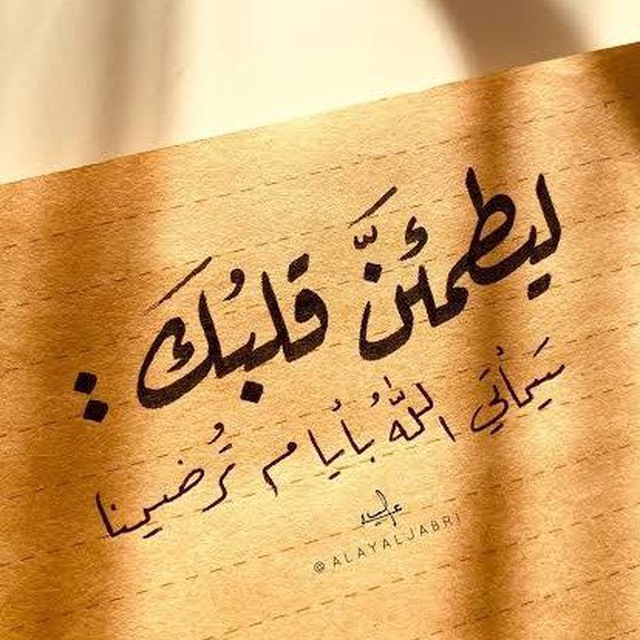 ليطمئنَّ قلبُكَ :
سَيأتي اللّٰهُ بأيام تُرضينا
علياء
@ALAYALJABRI